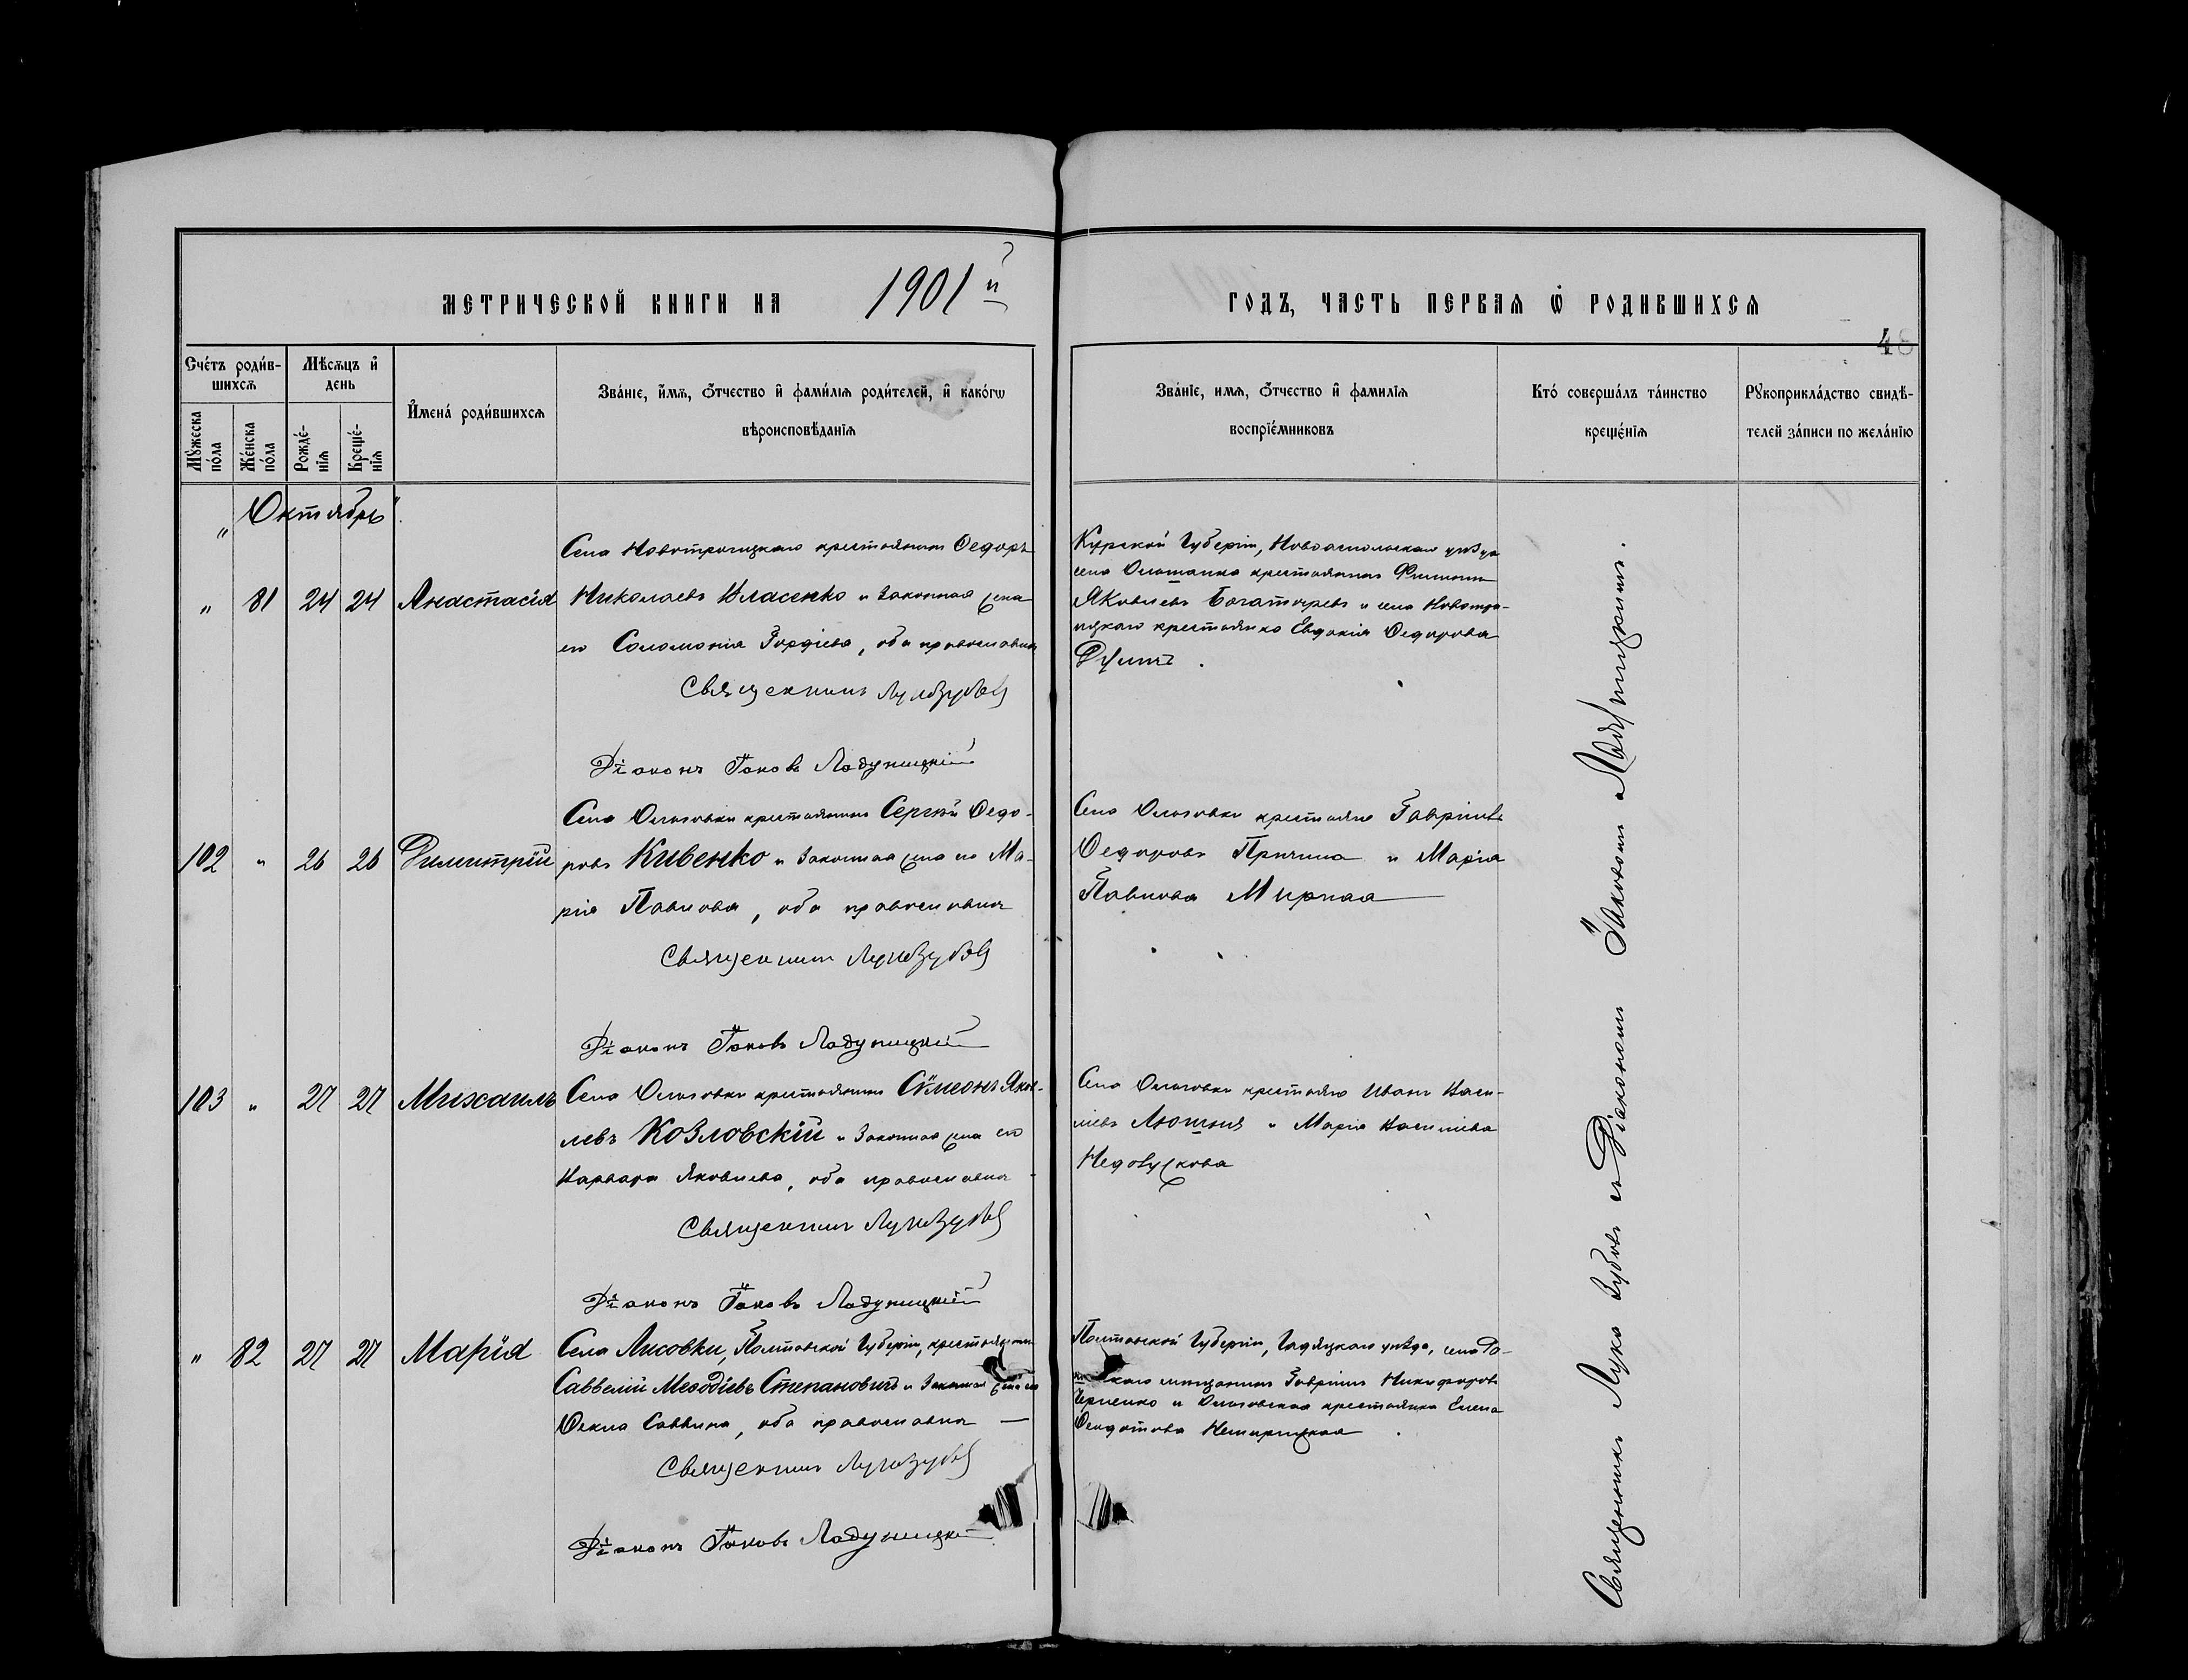 МЕТРИЧЕСКОЙ КНИГИ НА 1901й ГОДЪ, ЧАСТЬ ПЕРВАЯ Ѡ РОДИВШИХСЯ
48
Сче́тъ роди́в-
шихсѧ
Мѣ́сѧцъ и҆
день
Мꙋ́жеска
по́ла
Же́нска
по́ла
Рожде́-
нїѧ
Креще́-
нїѧ
И҆мена́ роди́вшихсѧ
Зва́нїе, и҆́мѧ, ѻ҆́тчество и҆ фами́лїѧ роди́телей, и҆ како́гѡ
вѣроисповѣ́данїѧ
Зва́нїе, имѧ, ѻ҆́тчество и҆ фамилїѧ
воспрїе́мниковъ
Кто́ соверша́лъ та́инство
креще́нїѧ
Рꙋкоприкла́дство свидѣ́-
телей за́писи по жела́нїю
Октябрь
" 81 24 24 Анастасія
Села Новотроицкаго крестьянинъ Ѳедоръ
Николаевъ Власенко и законная жена
его Соломонія Гордіева, оба православные
Священникъ Лука Зубовъ
Діаконъ Іаковъ Ладухницкій
Курской Губерніи, Новооскольскаго уѣзда
села крестьянинъ Филиппъ
Яковлевъ Богатыревъ и села Новотро-
ицкаго крестьянка Евдокія Ѳедорова
102 " 26 26 Димитрій
Села Ольговки крестьянинъ Сергѣй Ѳедо-
ровъ Кивенко и законная жена его Ма-
рія Павлова, оба православные
Священникъ Лука Зубовъ
Діаконъ Іаковъ Ладухницкій
Села Ольговки крестьяне Гавріилъ
Ѳедоровъ Притика и Марія
Павлова Мирная
103 " 27 27 Михаилъ
Села Ольговки крестьянинъ Сѵмеонъ Яков-
левъ Козловскій и законная жена его
Варвара Яковлева, оба православные
Священникъ Лука Зубовъ
Діаконъ Іаковъ Ладухницкій
Села Ольговки крестьяне Иванъ Васи-
ліевъ Лютый и Марія Василіева
" 82 27 27 Марія
Села Лисовки, Полтавской Губерніи, крестьянинъ
Савелій Меѳодіевъ Степановичъ и законная жена его
Ѳекла Саввина, оба православные
Священникъ Лука Зубовъ
Діаконъ Іаковъ Ладухницкій
Полтавской Губерніи, Гадяцкаго уѣзда, села
мѣщанинъ Гавріилъ Никифоровъ
и Ольговская крестьянка Елена
Ѳеодотова
Священникъ Лука Зубовъ съ Діакономъ Іаковомъ Ладухницкимъ.